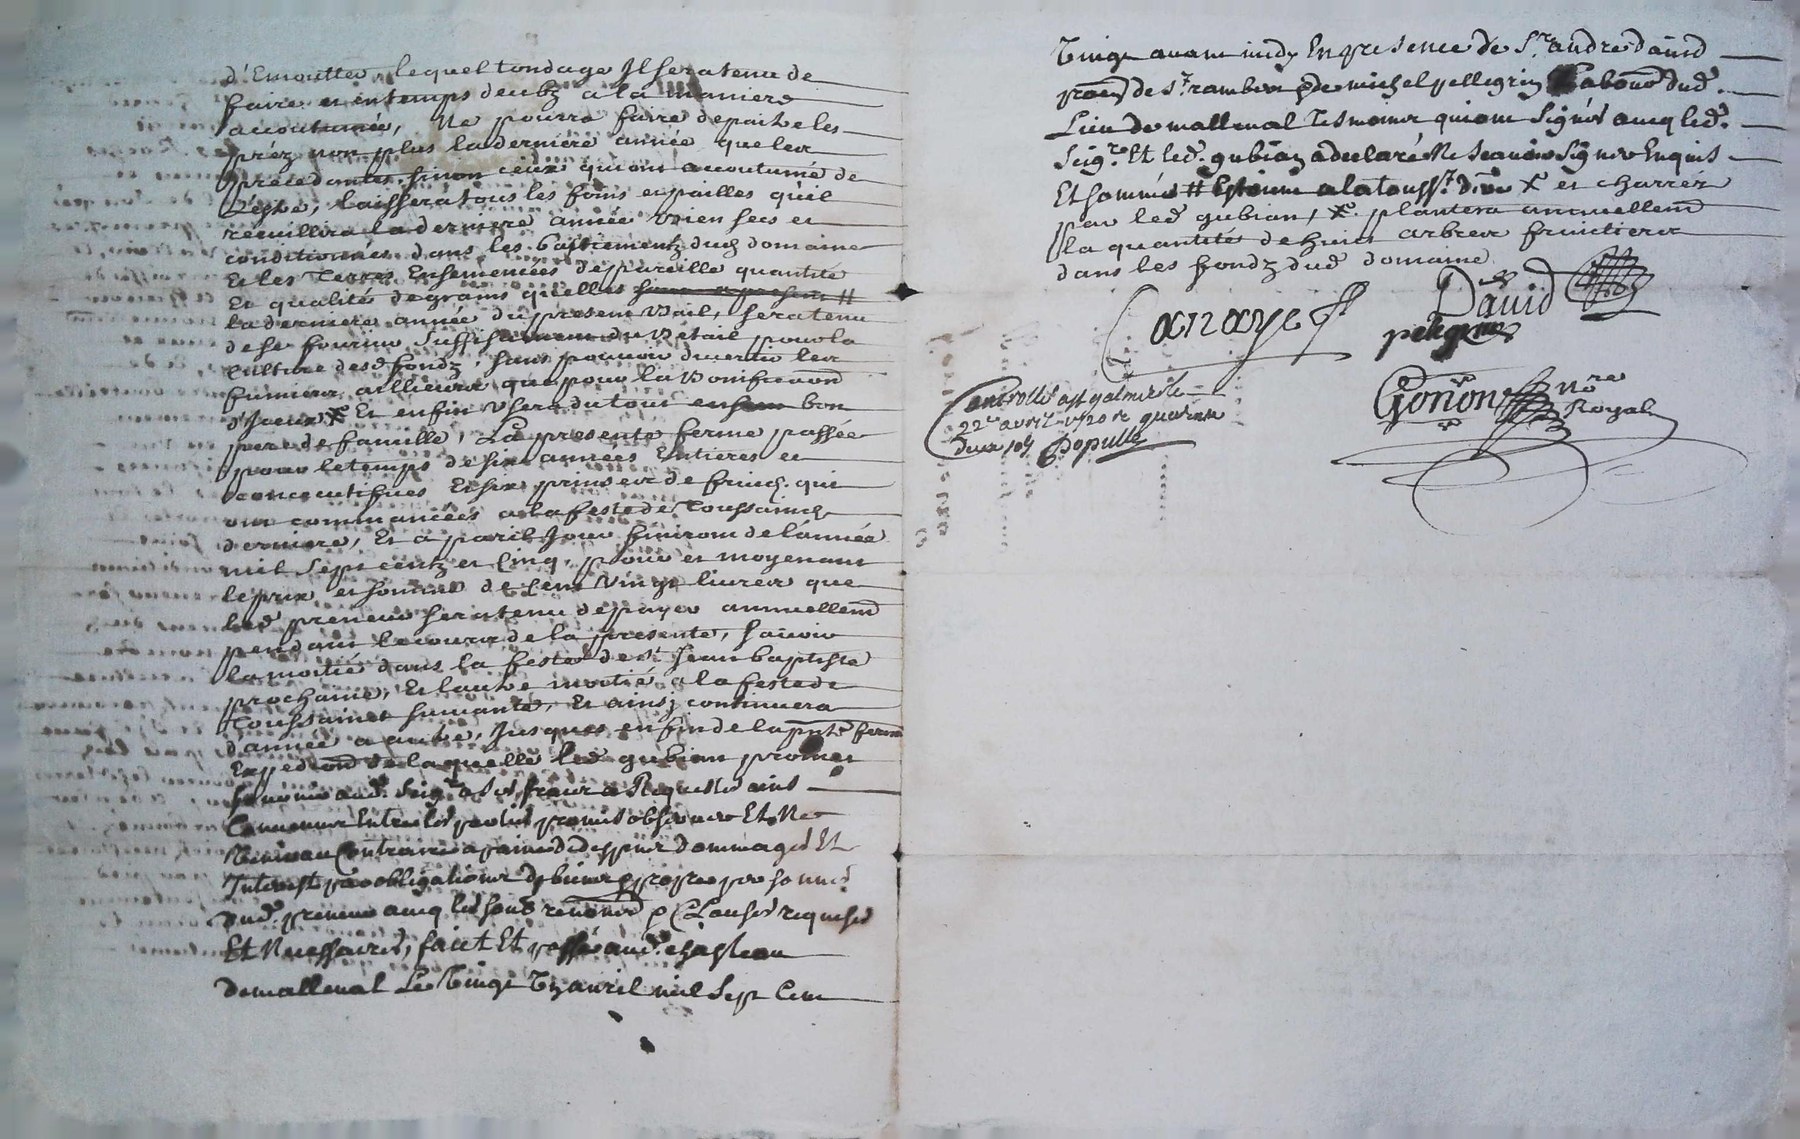 d'Emoutter, lequel tondage Il sera tenu de
faire et en temps deubz a la maniere
accoutumée, Ne pourra faire depaitre les
préz non plus la derniere année que les
precedantes sinon ceux qui ont accoutumé de
l'estre, laissera tous les foins et pailles qu'il
recuillira la derniere année bien secs et
conditionnés dans les bastiments dud domaine
Et les Terres Ensemencées de pareille quantité
Et qualité de grains qu'elles sont a present #
la derniere année du present Bail, sera tenu
de se fournir suffisamment du Betail pour la
culture desd fondz, sans pouvoir divertir les
fumiers allieurs que pour la Bonificaon
d'Iceux X Et enfin Usera du tout en bon
pere de famille, La presente ferme passée
pour le temps de six années Entieres et
consecutifves Et six prinses de fruicts qui
ont commancées a la feste de Toussainct
derniere, Et a pareil Jour finiront de l'année
mil sept centz et cinq, pour et moyenant
le prix et somme de Cent vingt livres que
led preneur sera tenu de payer annuellemt
pendant le cours de la presente, scavoir
la moitié dans la feste de St Jean baptiste
prochaine, Et l'autre moitié a la feste de
Toussainct suivante, Et ainsj continuera
d'année a autre, Jusques en fin de la pnte ferme
Expedon de laquelle led gubian promet
fournir aud. Seigr a ses fraix a Requeste ains
Convenu Entre les parties promis observer Et Ne
Venir au Contraire a paine de despens dommages Et
Interest par obligations de biens propres personnes
dud. preneur avecq les soub renonces Clauses requises
Et Necessaires, faict Et passé aud. chasteau
de malleval Le Vingt Un avril mil Sept Cent
Vingt avant midy En presence de Sr andre david
de St rambert de michel pellegrin dud.
Lieu de malleval Tesmoins qui ont Signés avecq led.
Seigr Et led. gubian a declaré Ne scavoir Signer Enquis
Et sommé # Estoient a la touss. X et charrés
par led gubian, X. plantera annuellemt
la quantité de huit arbres fruictiers
dans les fondz dud domaine
Canaye
David
pelegrin
Gonon Nore
Royal
Controllé a st galmier le
22e avril 1720 re quarante
deux sols Depullé